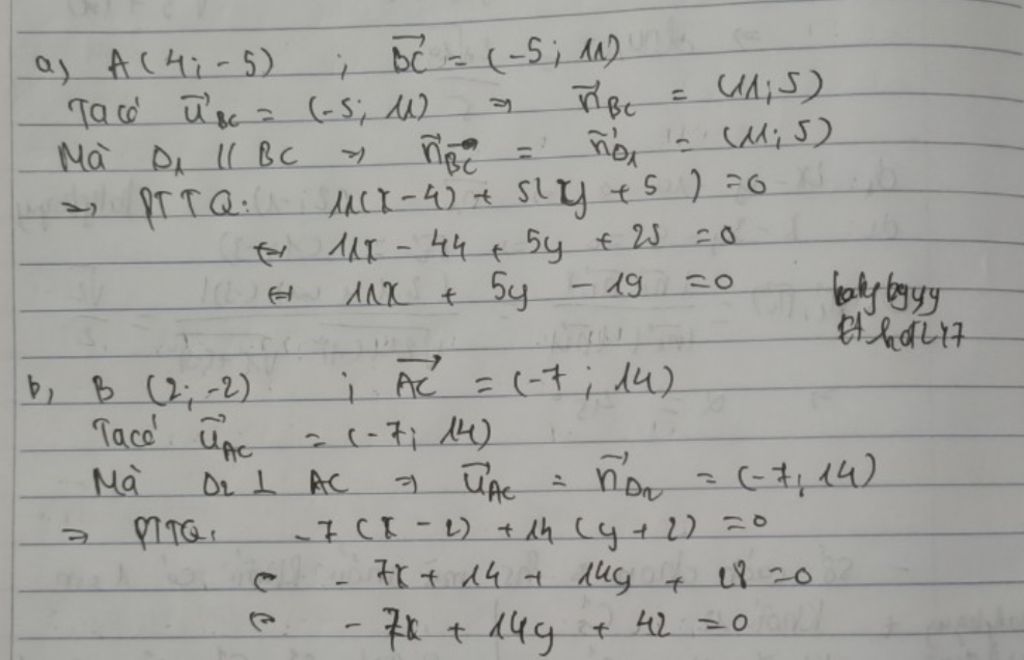 a, A(4; -5) ; \overrightarrow{BC} = (-5; 11)
Ta có \vec{u}_{BC} = (-5; 11) ⇒ \vec{n}_{BC} = (11; 5)
Mà D₁ // BC ⇒ \vec{n}_{BC} = \vec{n}_{D₁} = (11; 5)
⇒ PTTQ: 11(x - 4) + 5(y + 5) = 0
⇔ 11x - 44 + 5y + 25 = 0
⇔ 11x + 5y - 19 = 0
b, B (2; -2) ; \overrightarrow{AC} = (-7; 14)
Ta có \vec{u}_{AC} = (-7; 14)
Mà D₂ ⊥ AC ⇒ \vec{u}_{AC} = \vec{n}_{D₂} = (-7; 14)
⇒ PTTQ: -7(x - 2) + 14(y + 2) = 0
⇔ - 7x + 14 + 14y + 28 = 0
⇔ - 7x + 14y + 42 = 0